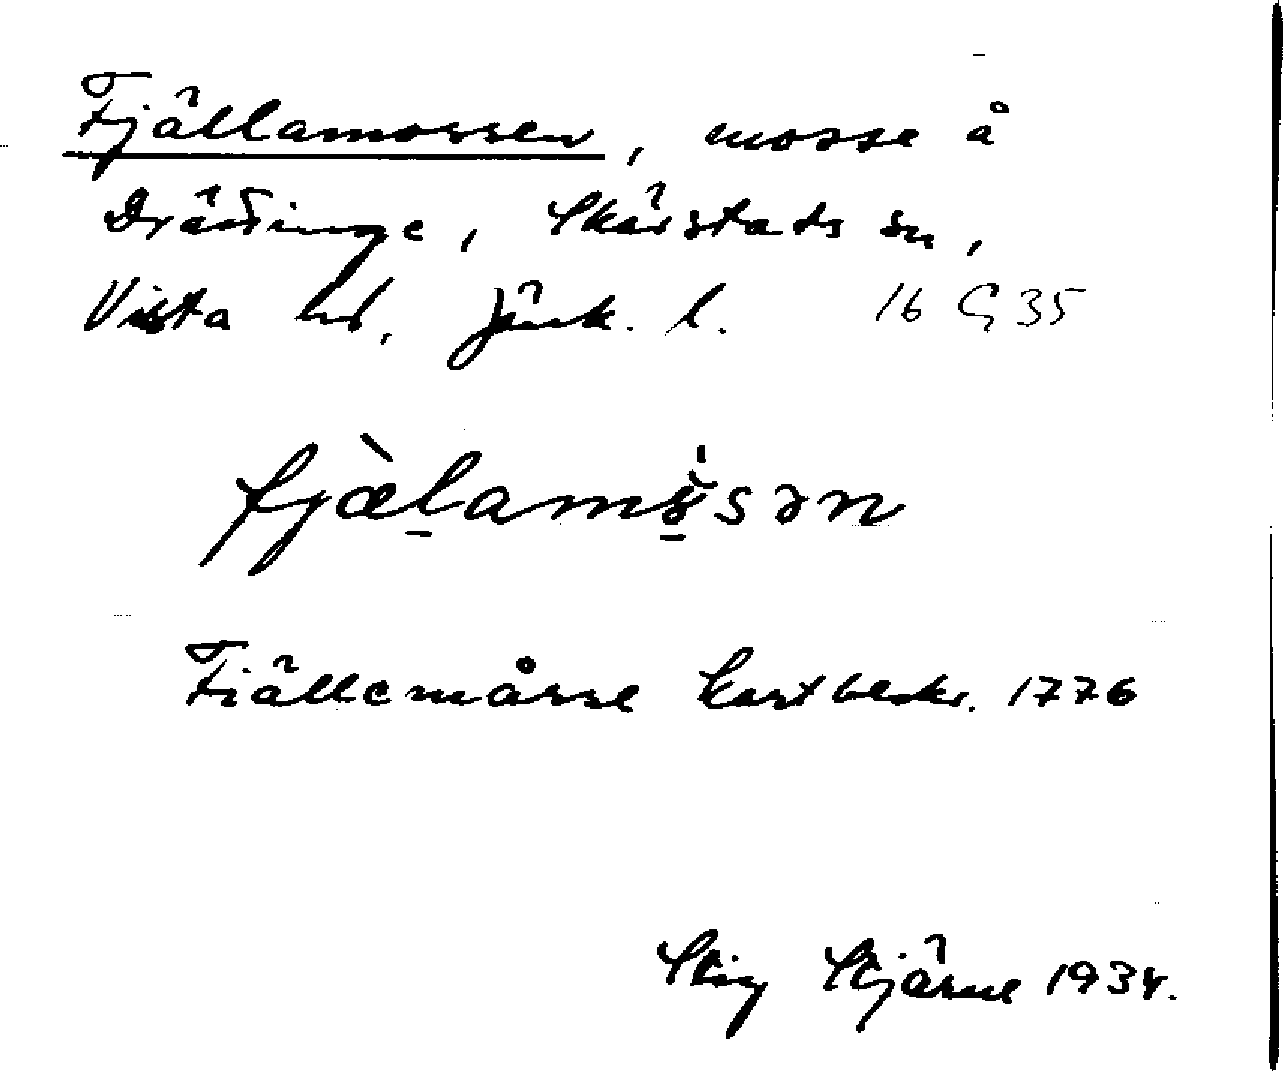 Fjällamossen, mosse å
Drättinge, Skärstads sn,
Vista hd, Jönk. l. 16 G 35
fjæ̀lamɤ̀sən
Fiällemåsse kartbeskr. 1776
Stig Stjärne 1934.